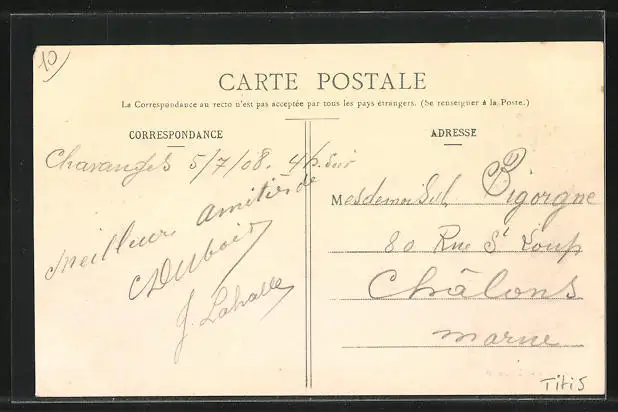 10
CARTE POSTALE
La Correspondance au recto n'est pas acceptée par tous les pays étrangers. (Se renseigner à la Poste.)
CORRESPONDANCE
Chavanges 5/7/08. 4h. soir
Meilleures amitiés de
Dubois
J. Lahalle
ADRESSE
Mesdemoisel. Bigorgne
80 Rue St Loup
Châlons
Marne
Titis